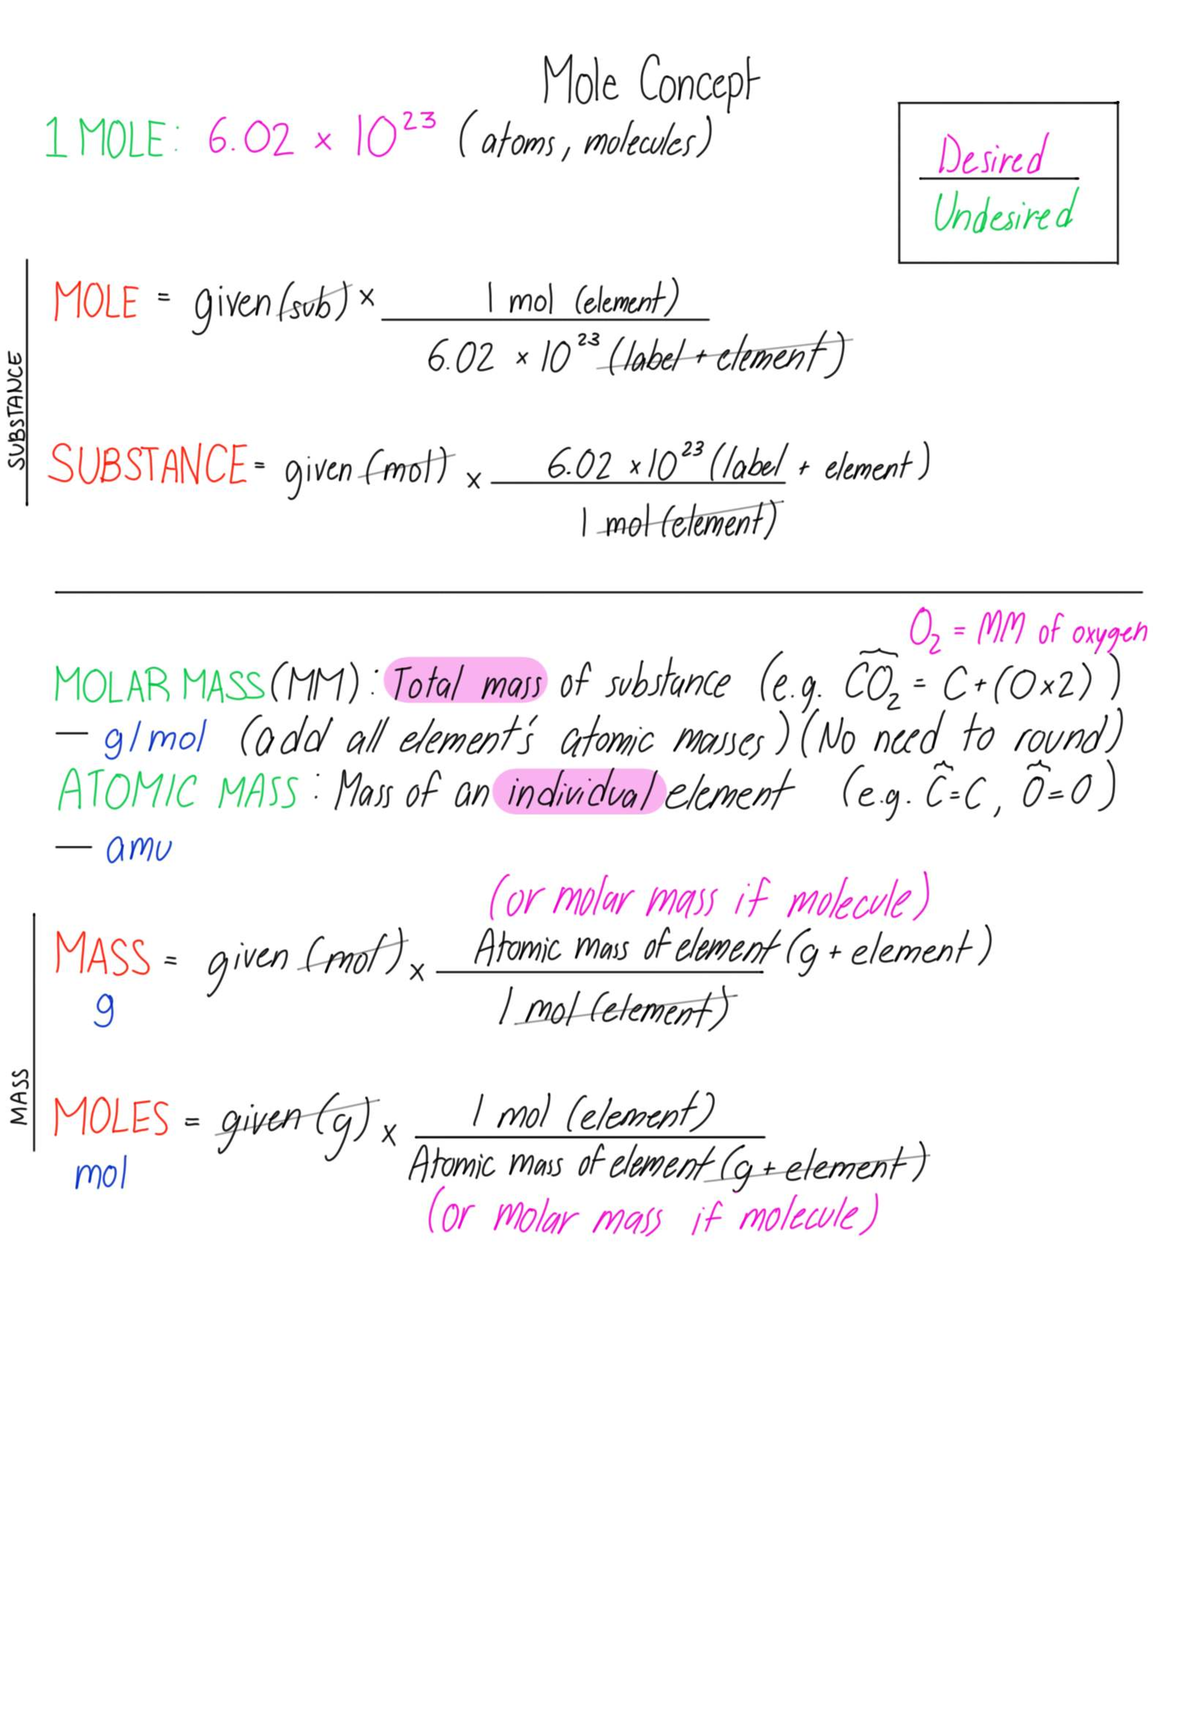 Mole Concept
1 MOLE: 6.02 × 10²³ (atoms, molecules)
Desired
Undesired
SUBSTANCE
MOLE = given (sub) × 1 mol (element)
6.02 × 10²³ (label + element)
SUBSTANCE = given (mol) × 6.02 × 10²³ (label + element)
1 mol (element)
O₂ = MM of oxygen
MOLAR MASS (MM): Total mass of substance (e.g. CO₂ = C+(O×2))
— g/mol (add all element's atomic masses) (No need to round)
ATOMIC MASS: Mass of an individual element (e.g. C=C, O=O)
— amu
(or molar mass if molecule)
MASS
MASS = given (mol) × Atomic mass of element (g + element)
g
1 mol (element)
MOLES = given (g) × 1 mol (element)
mol
Atomic mass of element (g + element)
(or molar mass if molecule)